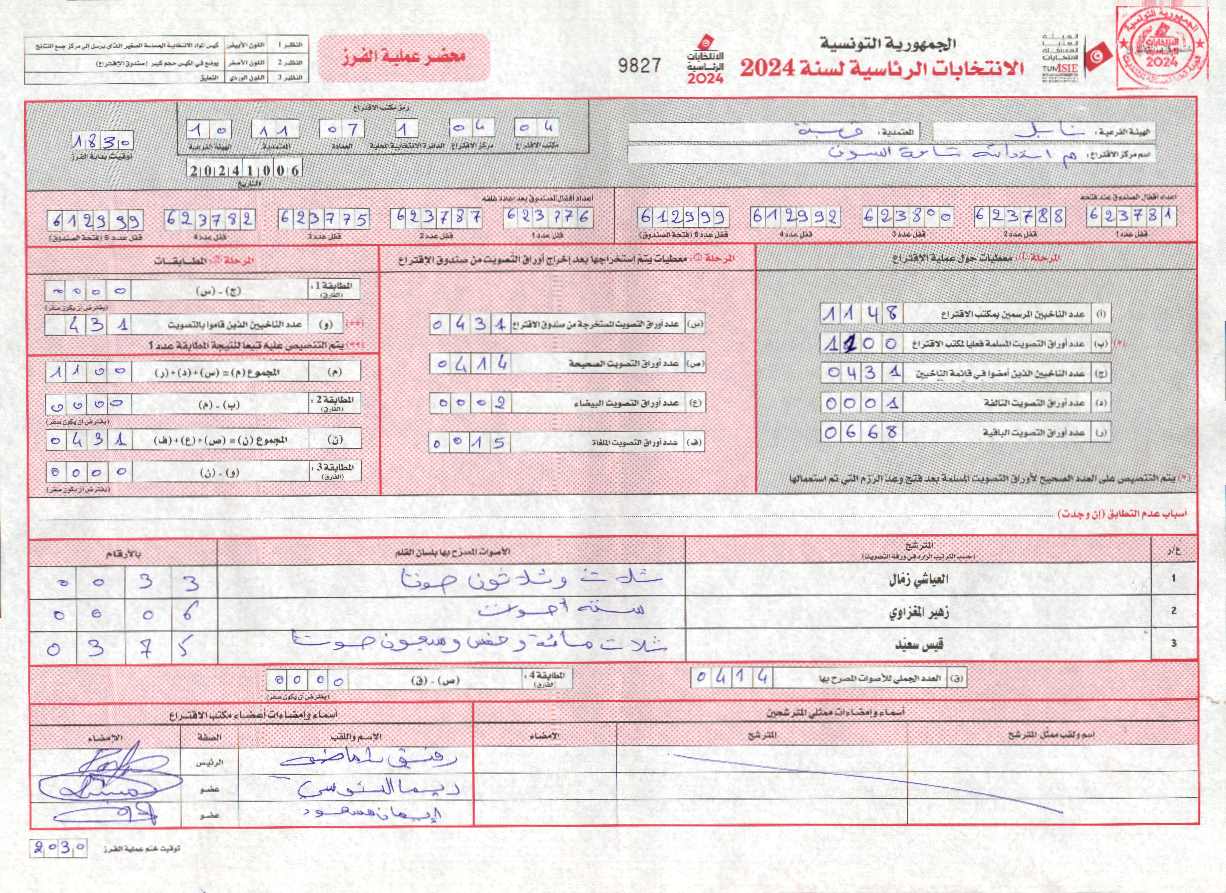 الجمهورية التونسية
الانتخابات الرئاسية لسنة 2024
الانتخابات الرئاسية 2024
9827
محضر عملية الفرز
النظير 1 اللون الأبيض كيس المواد الانتخابية الحساسة الصغير الذي يرسل إلى مركز جمع النتائج
النظير 2 اللون الأصفر يوضع في الكيس حجم كبير (صندوق الإقتراع)
النظير 3 اللون الوردي التعليق
الهيئة الفرعية : نابل
المعتمدية :
اسم مركز الاقتراع :
رمز مكتب الاقتراع
04 04 1 07 11 10
مكتب الاقتراع مركز الاقتراع الدائرة الانتخابية المحلية العمادة المعتمدية الهيئة الفرعية
20241006
التاريخ
1830
توقيت بداية الفرز
أعداد أقفال الصندوق عند فتحه
623781 623788 623800 612992 612999
قفل عدد 1 قفل عدد 2 قفل عدد 3 قفل عدد 4 قفل عدد 5 (فتحة الصندوق)
أعداد أقفال الصندوق بعد إعادة غلقه
623776 623787 623775 623782 612999
قفل عدد 1 قفل عدد 2 قفل عدد 3 قفل عدد 4 قفل عدد 5 (فتحة الصندوق)
معطيات حول عملية الاقتراع
(أ) عدد الناخبين المرسمين بمكتب الاقتراع 1148
(*) (ب) عدد أوراق التصويت المسلمة فعليا لمكتب الاقتراع 1100
(ج) عدد الناخبين الذين أمضوا في قائمة الناخبين 0431
(د) عدد أوراق التصويت التالفة 0001
(ر) عدد أوراق التصويت الباقية 0668
(*) يتم التنصيص على العدد الصحيح لأوراق التصويت المسلمة بعد فتح وعد الرزم التي تم استعمالها
معطيات يتم إستخراجها بعد إخراج أوراق التصويت من صندوق الإقتراع
(س) عدد أوراق التصويت المستخرجة من صندوق الاقتراع 0431
(ص) عدد أوراق التصويت الصحيحة 0414
(ع) عدد أوراق التصويت البيضاء 0002
(ف) عدد أوراق التصويت الملغاة 0015
المطابقات
المطابقة 1 : (الفارق) (ج) - (س) 0000
(يفترض أن يكون صفر)
(**) (و) عدد الناخبين الذين قاموا بالتصويت 431
(**) يتم التنصيص عليه تبعا لنتيجة المطابقة عدد 1
(م) المجموع (م) = (س) + (د) + (ر) 1100
المطابقة 2 : (الفارق) (ب) - (م) 0000
(يفترض أن يكون صفر)
(ن) المجموع (ن) = (ص) + (ع) + (ف) 0431
المطابقة 3 : (الفارق) (و) - (ن) 0000
(يفترض أن يكون صفر)
أسباب عدم التطابق (إن وجدت)
ع/ر المترشح (حسب الترتيب الوارد في ورقة التصويت) الأصوات المصرح بها بلسان القلم بالأرقام
1 العياشي زمّال ثلاث وثلاثون صوتا 0033
2 زهير المغزاوي ستة أصوات 0006
3 قيس سعيّد ثلاث مائة وخمس وسبعون صوتا 0375
(ق) العدد الجملي للأصوات المصرح بها 0414
المطابقة 4 : (الفارق) (ص) - (ق) 0000
(يفترض أن يكون صفر)
أسماء وإمضاءات ممثلي المترشحين
اسم ولقب ممثل المترشح المترشح الإمضاء
أسماء وإمضاءات أعضاء مكتب الاقتراع
الإسم واللقب الصفة الإمضاء
الرئيس
عضو
عضو
توقيت ختم عملية الفرز 2030